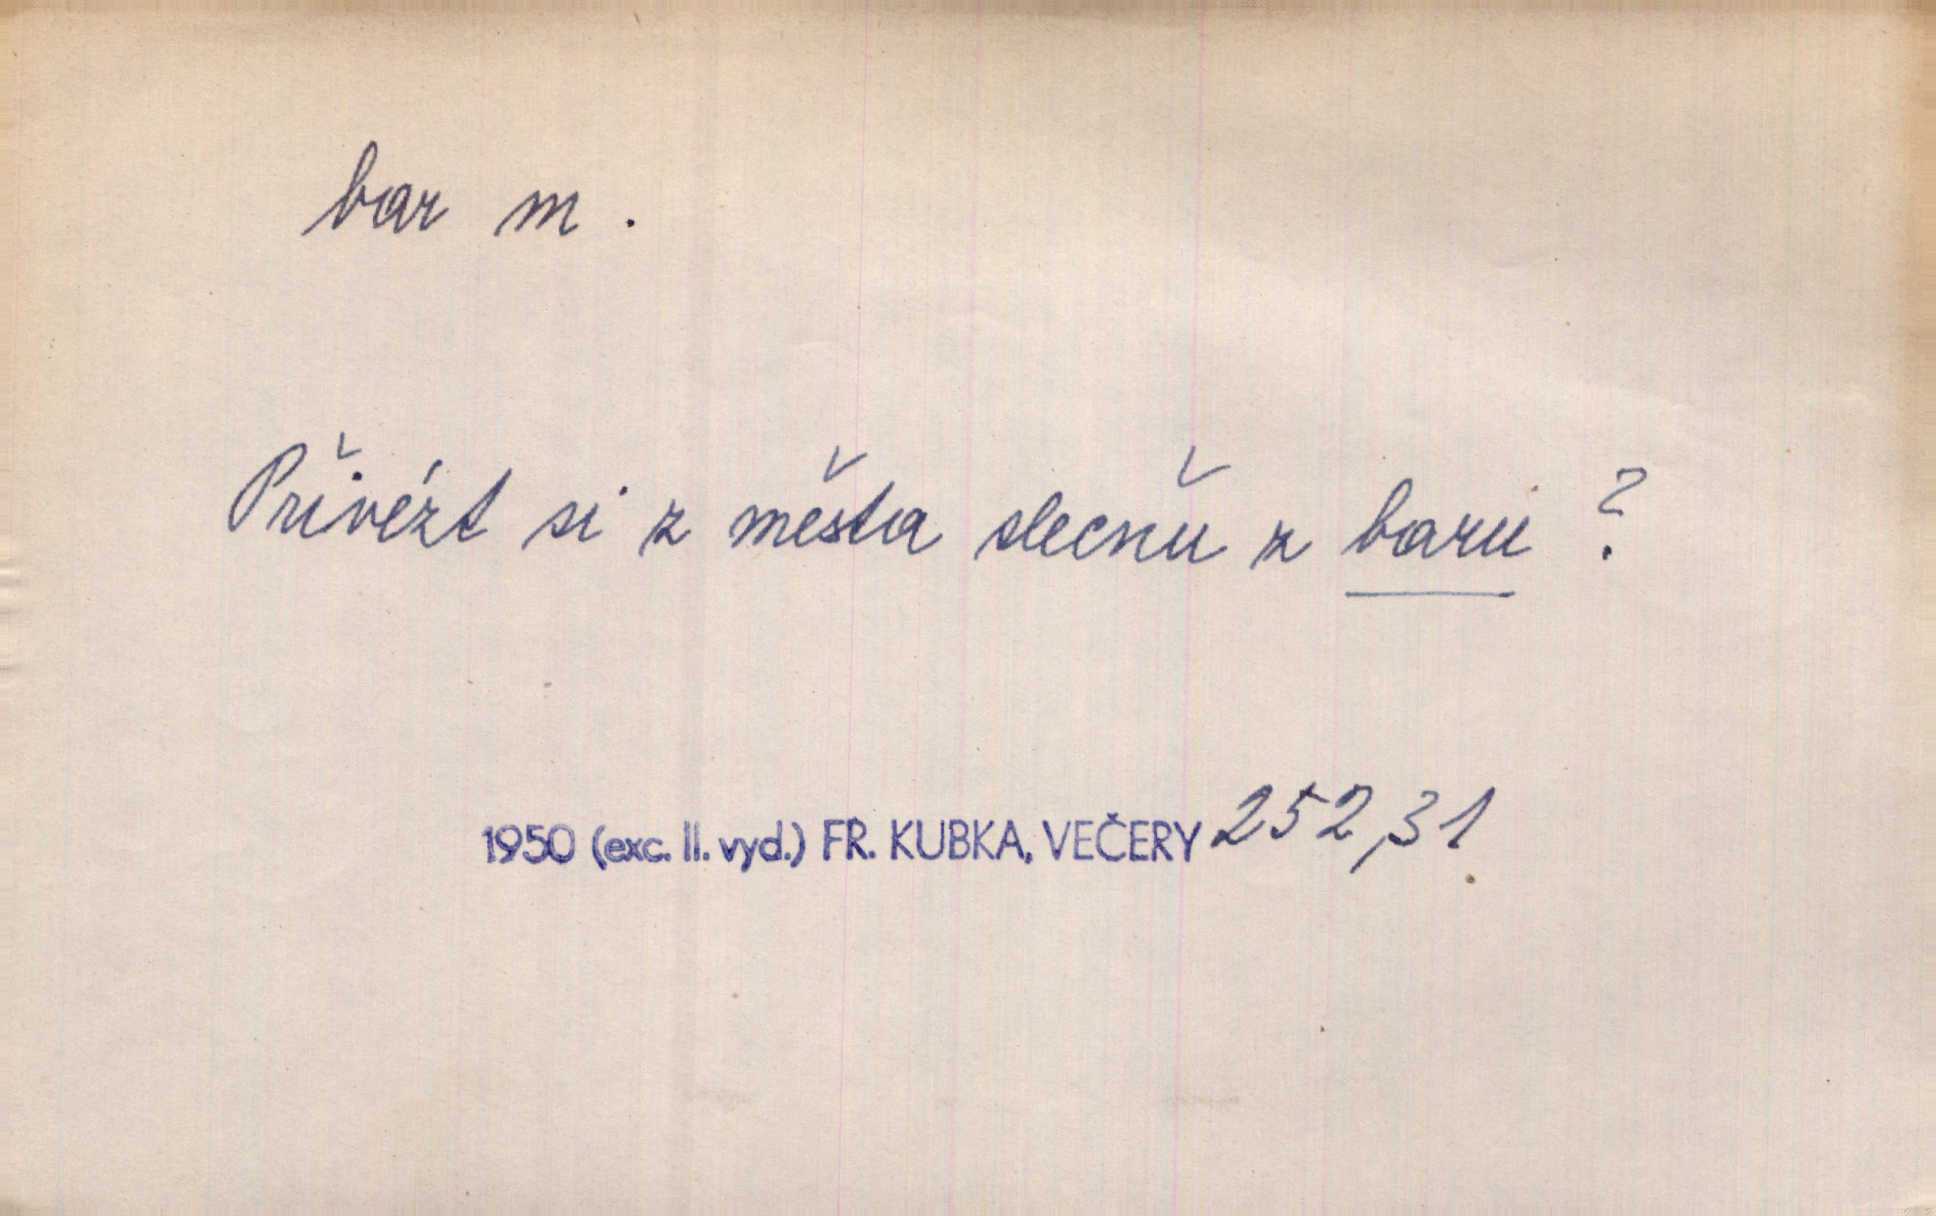 bar m.
Přivézt si z města slečnu z baru?
1950 (exc. II. vyd.) FR. KUBKA, VEČERY 252,31